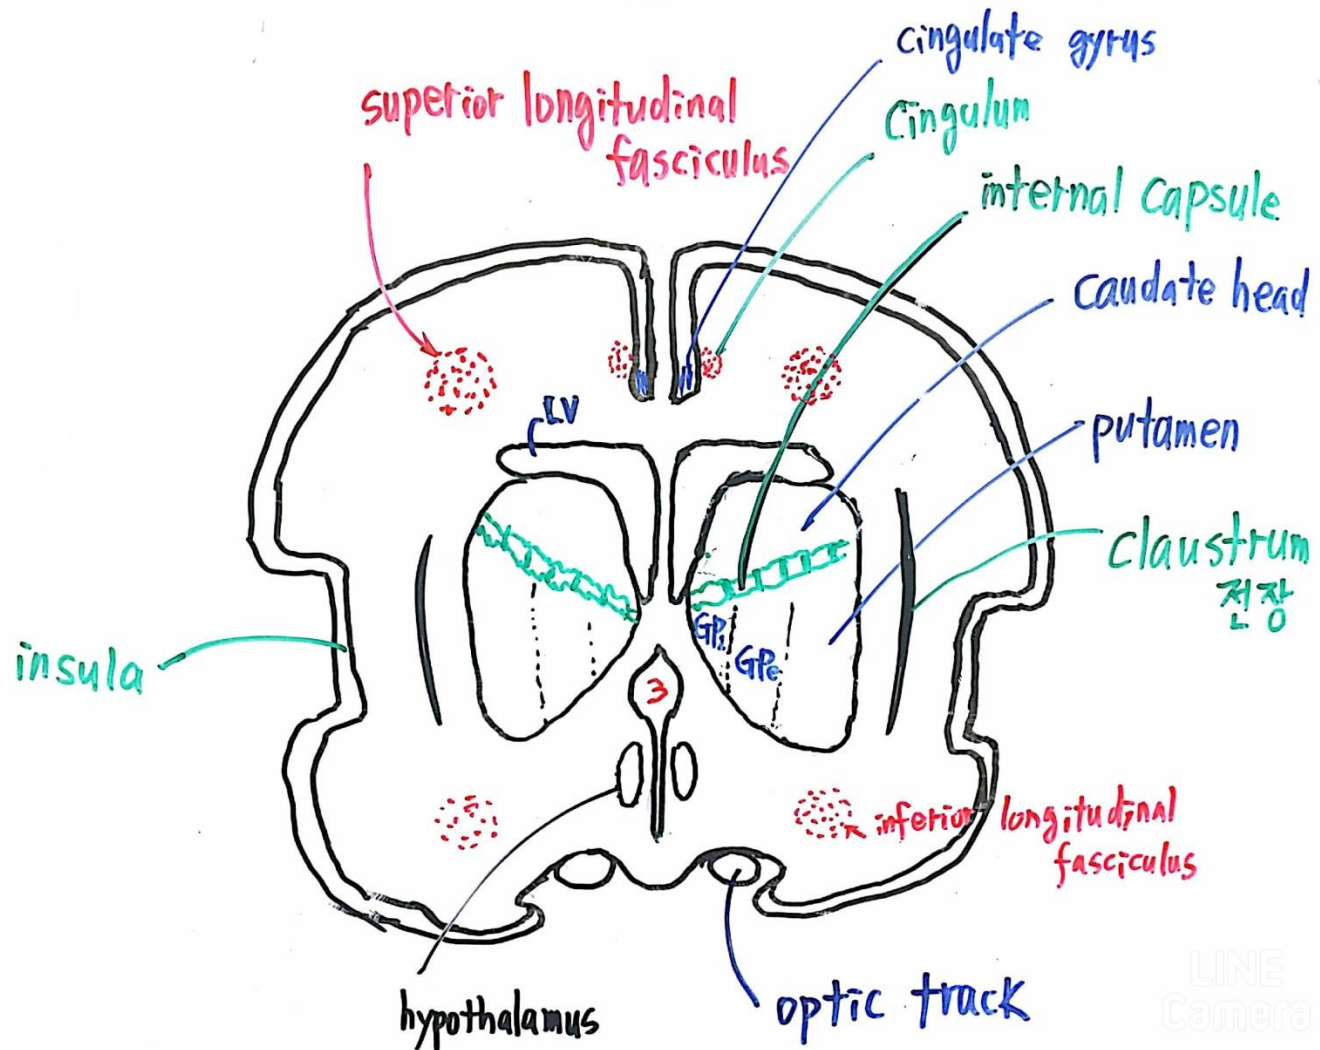 cingulate gyrus
superior longitudinal
fasciculus
cingulum
internal capsule
caudate head
LV
putamen
claustrum
전장
insula
GPi
GPe
3
inferior longitudinal
fasciculus
hypothalamus
optic track
LINE
Camera